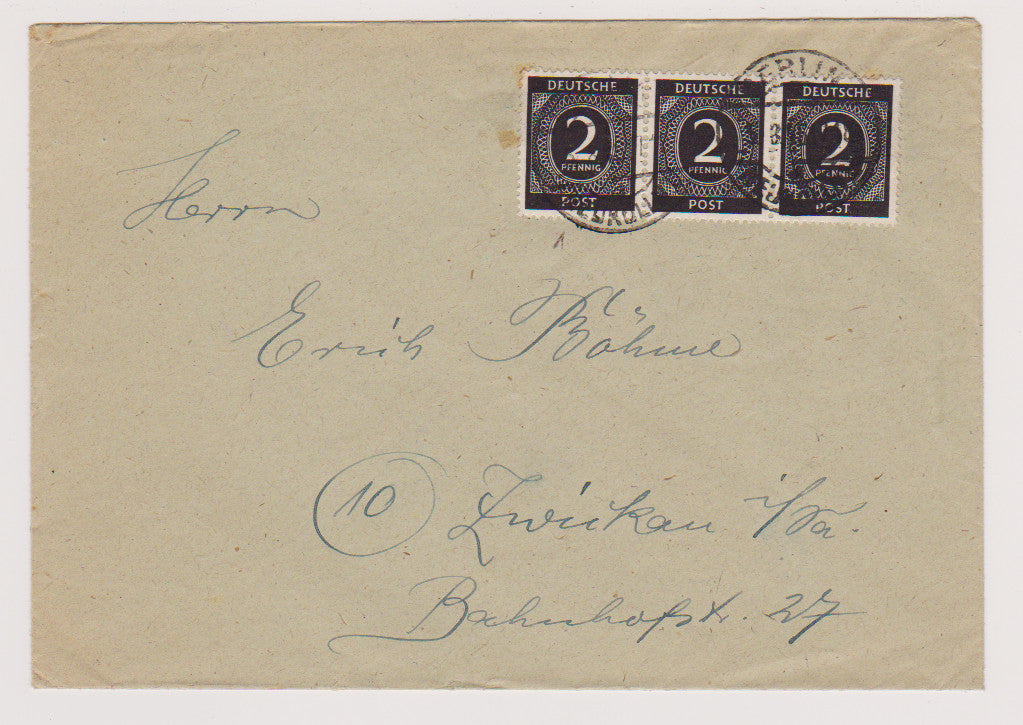 DEUTSCHE DEUTSCHE DEUTSCHE
2 2 2
PFENNIG PFENNIG PFENNIG
POST POST POST
BERLIN
Herrn
Erich Böhme
10 Zwickau i/Sa.
Bahnhofstr. 27